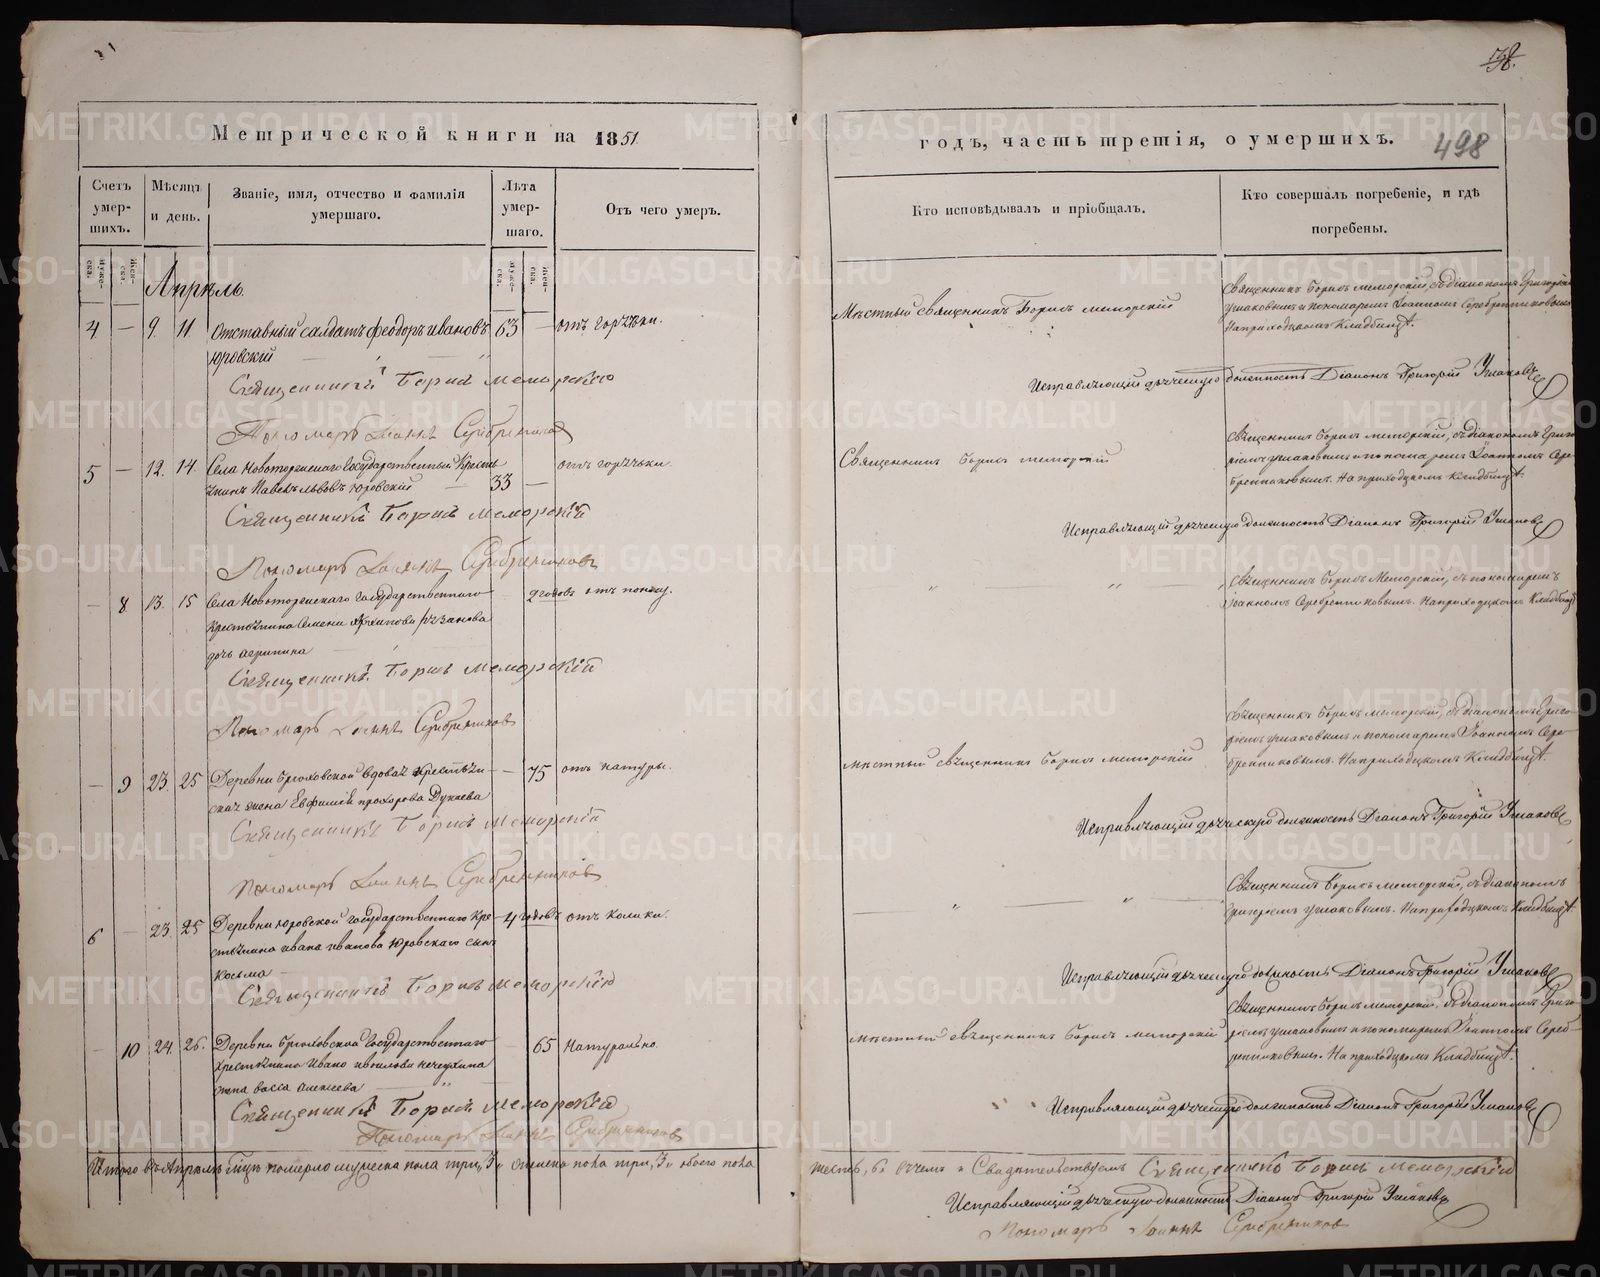 498
Метрической книги на 1851
годъ, часть третія, о умершихъ.
Счетъ умер-шихъ.
Мѣсяцъ и день.
Званіе, имя, отчество и фамилія умершаго.
Лѣта умер-шаго.
Отъ чего умеръ.
Кто исповѣдывалъ и пріобщалъ.
Кто совершалъ погребеніе, и гдѣ погребены.
Апрѣль.
4 — 9. 11. Отставный солдатъ Феодоръ Ивановъ 63 — отъ горячки.
Юровскій
Мѣстный священникъ Борисъ Меморскій
Священникъ Борисъ Меморскій, съ діакономъ Григоріемъ
Ушаковымъ и пономаремъ Іоанномъ Серебренниковымъ
На приходскомъ кладбищѣ.
Священникъ Борисъ Меморскій
Исправляющій дьяческую должность Діаконъ Григорій Ушаковъ
Пономарь Іоаннъ Серебрениковъ
5 — 12. 14. Села Новоторжскаго Государственный крестья-
нинъ Павелъ Львовъ Юровскій 33 — отъ горячки.
Священникъ Борисъ Меморскій
Священникъ Борисъ Меморскій, съ діакономъ Григо-
ріемъ Ушаковымъ и пономаремъ Іоанномъ Сере-
бренниковымъ. На приходскомъ кладбищѣ.
Священникъ Борисъ Меморскій
Исправляющій дьяческую должность Діаконъ Григорій Ушаковъ
Пономарь Іоаннъ Серебрениковъ
— 8 13. 15 Села Новоторжскаго Государственнаго — 2 годовъ отъ поносу.
крестьянина Семена Архипова
дочь Агрипина
Священникъ Борисъ Меморскій, съ пономаремъ
Іоанномъ Серебренниковымъ. На приходскомъ кладбищѣ
Священникъ Борисъ Меморскій
Пономарь Іоаннъ Серебрениковъ
— 9 23. 25 Деревни Брюховской вдовая крестьян- — 75 отъ натуры.
ская жена Евфимія Прохорова
мѣстный священникъ Борисъ Меморскій
Священникъ Борисъ Меморскій, съ діакономъ Григо-
ріемъ Ушаковымъ и пономаремъ Іоанномъ Сере-
бренниковымъ. На приходскомъ кладбищѣ.
Священникъ Борисъ Меморскій
Исправляющій дьяческую должность Діаконъ Григорій Ушаковъ
Пономарь Іоаннъ Серебрениковъ
6 — 23. 25 Деревни Юровской Государственнаго кре- 4 годовъ отъ колики.
стьянина Ивана Иванова Юровскаго сынъ
Косьма
Священникъ Борисъ Меморскій, съ діакономъ
Григоріемъ Ушаковымъ. На приходскомъ кладбищѣ.
Священникъ Борисъ Меморскій
Исправляющій дьяческую должность Діаконъ Григорій Ушаковъ
— 10 24. 26. Деревни Брюховской Государственнаго — 65 Натурально
крестьянина Ивана
жена Васса Алексеева
мѣстный священникъ Борисъ Меморскій
Священникъ Борисъ Меморскій, съ діакономъ Григо-
ріемъ Ушаковымъ и пономаремъ Іоанномъ Сереб-
рениковымъ. На приходскомъ кладбищѣ.
Священникъ Борисъ Меморскій
Исправляющій дьяческую должность Діаконъ Григорій Ушаковъ
Пономарь Іоаннъ Серебрениковъ
Итого въ Апрѣлѣ мцѣ померло мужеска пола три, 3 и женска пола три, 3 и обоего пола
шесть, 6. О чемъ и Свидѣтельствуемъ Священникъ Борисъ Меморскій
Исправляющій дьяческую должность Діаконъ Григорій Ушаковъ
Пономарь Іоаннъ Серебрениковъ
METRIKI.GASO-URAL.RU